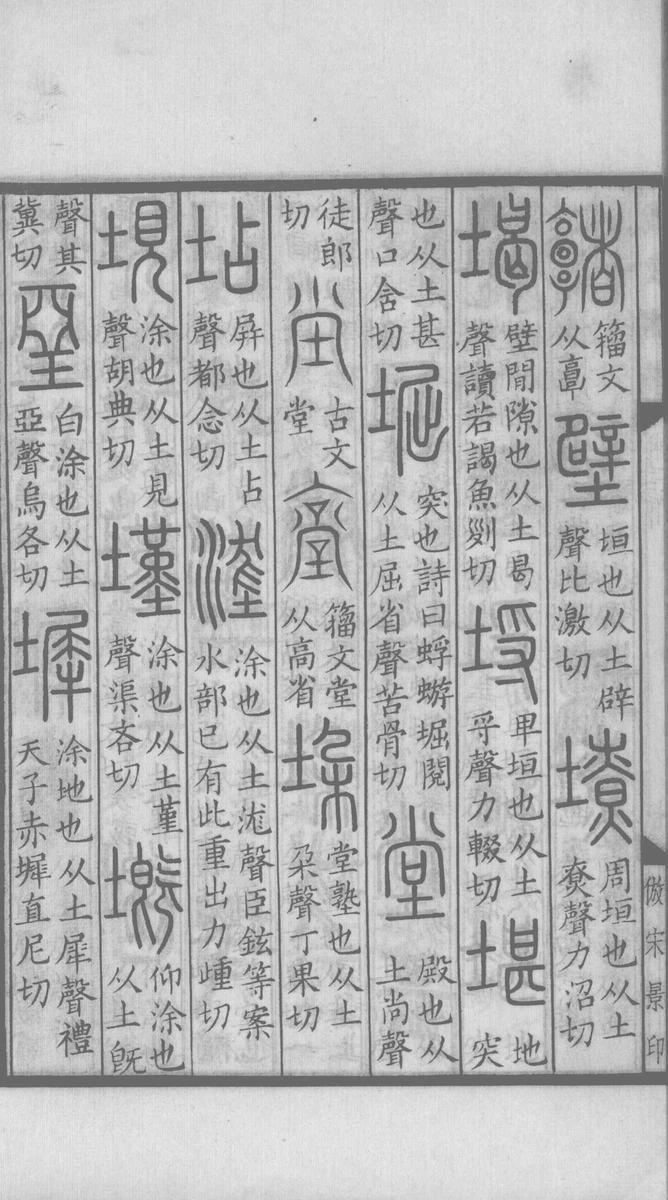 𩫨籒文从𩫏壁垣也从土辟聲比激切𡑭周垣也从土尞聲力沼切
堨壁間隙也从土曷聲讀若謁魚𠛱切埒卑垣也从土寽聲力輟切堪地突
也从土甚聲口含切堀突也詩曰蜉蝣堀閱从土屈省聲苦骨切堂殿也从土尚聲
徒郎切坣古文堂𡫾籒文堂从高省垛堂塾也从土朵聲丁果切
坫屏也从土占聲都念切𡓱涂也从土浝聲臣鉉等案水部已有此重出力歱切
垷涂也从土見聲胡典切墐涂也从土堇聲渠吝切墍仰涂也从土旣
聲其冀切堊白涂也从土亞聲烏各切墀涂地也从土犀聲禮天子赤墀直尼切
倣宋景印